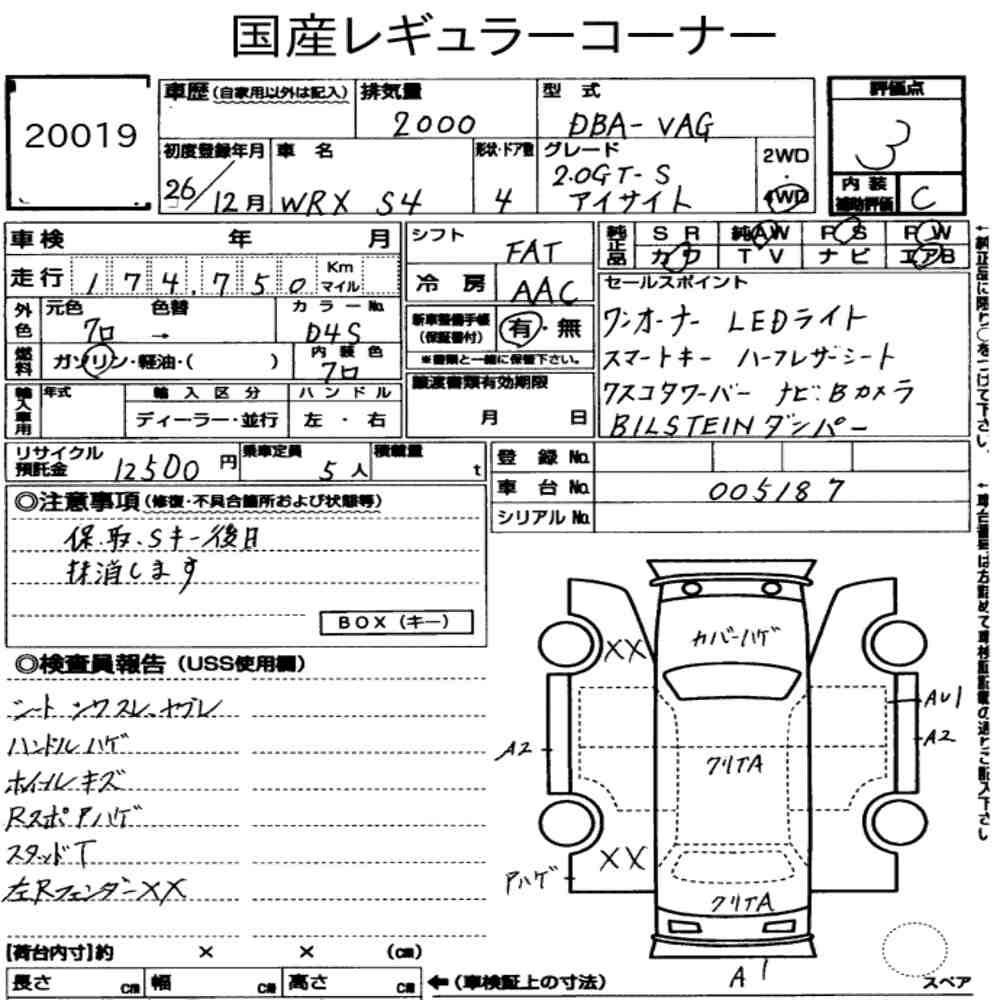 国産レギュラーコーナー
20019
車歴(自家用以外は記入) 排気量 型式 評価点
2000 DBA-VAG 3
初度登録年月 車名 形状・ドア数 グレード 2WD・4WD
26/12月 WRX S4 4 2.0GT-S アイサイト
内装補助評価 C
車検 年 月 シフト FAT
純正品 SR 純AW PS PW
カワ TV ナビ エアB
走行 174,750 Km マイル 冷房 AAC
セールスポイント
外色 元色 色替 カラーNo.
クロ → D4S
新車整備手帳(保証書付) 有・無
※書類と一緒に保管下さい。
ワンオーナー LEDライト
スマートキー ハーフレザーシート
クスコタワーバー ナビ・Bカメラ
BILSTEINダンパー
燃料 ガソリン・軽油・( ) 内装色 クロ
譲渡書類有効期限
月 日
輸入車用 年式 輸入区分 ハンドル
ディーラー・並行 左・右
リサイクル預託金 12500円 乗車定員 5人 積載量 t
登録No.
車台No. 005187
シリアルNo.
◎注意事項(修復・不具合箇所および状態等)
保.取.Sキー後日
抹消します
BOX(キー)
◎検査員報告(USS使用欄)
ハンドルハゲ
ホイールキズ
Rスポアハゲ
スタッドT
左Rフェンダー××
カバーハゲ
××
AU1
A2
A2
クリTA
××
アハゲ
クリTA
A1
スペア
[荷台内寸]約 × × (cm)
長さ cm 幅 cm 高さ cm ←(車検証上の寸法)
↑純正品に限り○をつけて下さい。